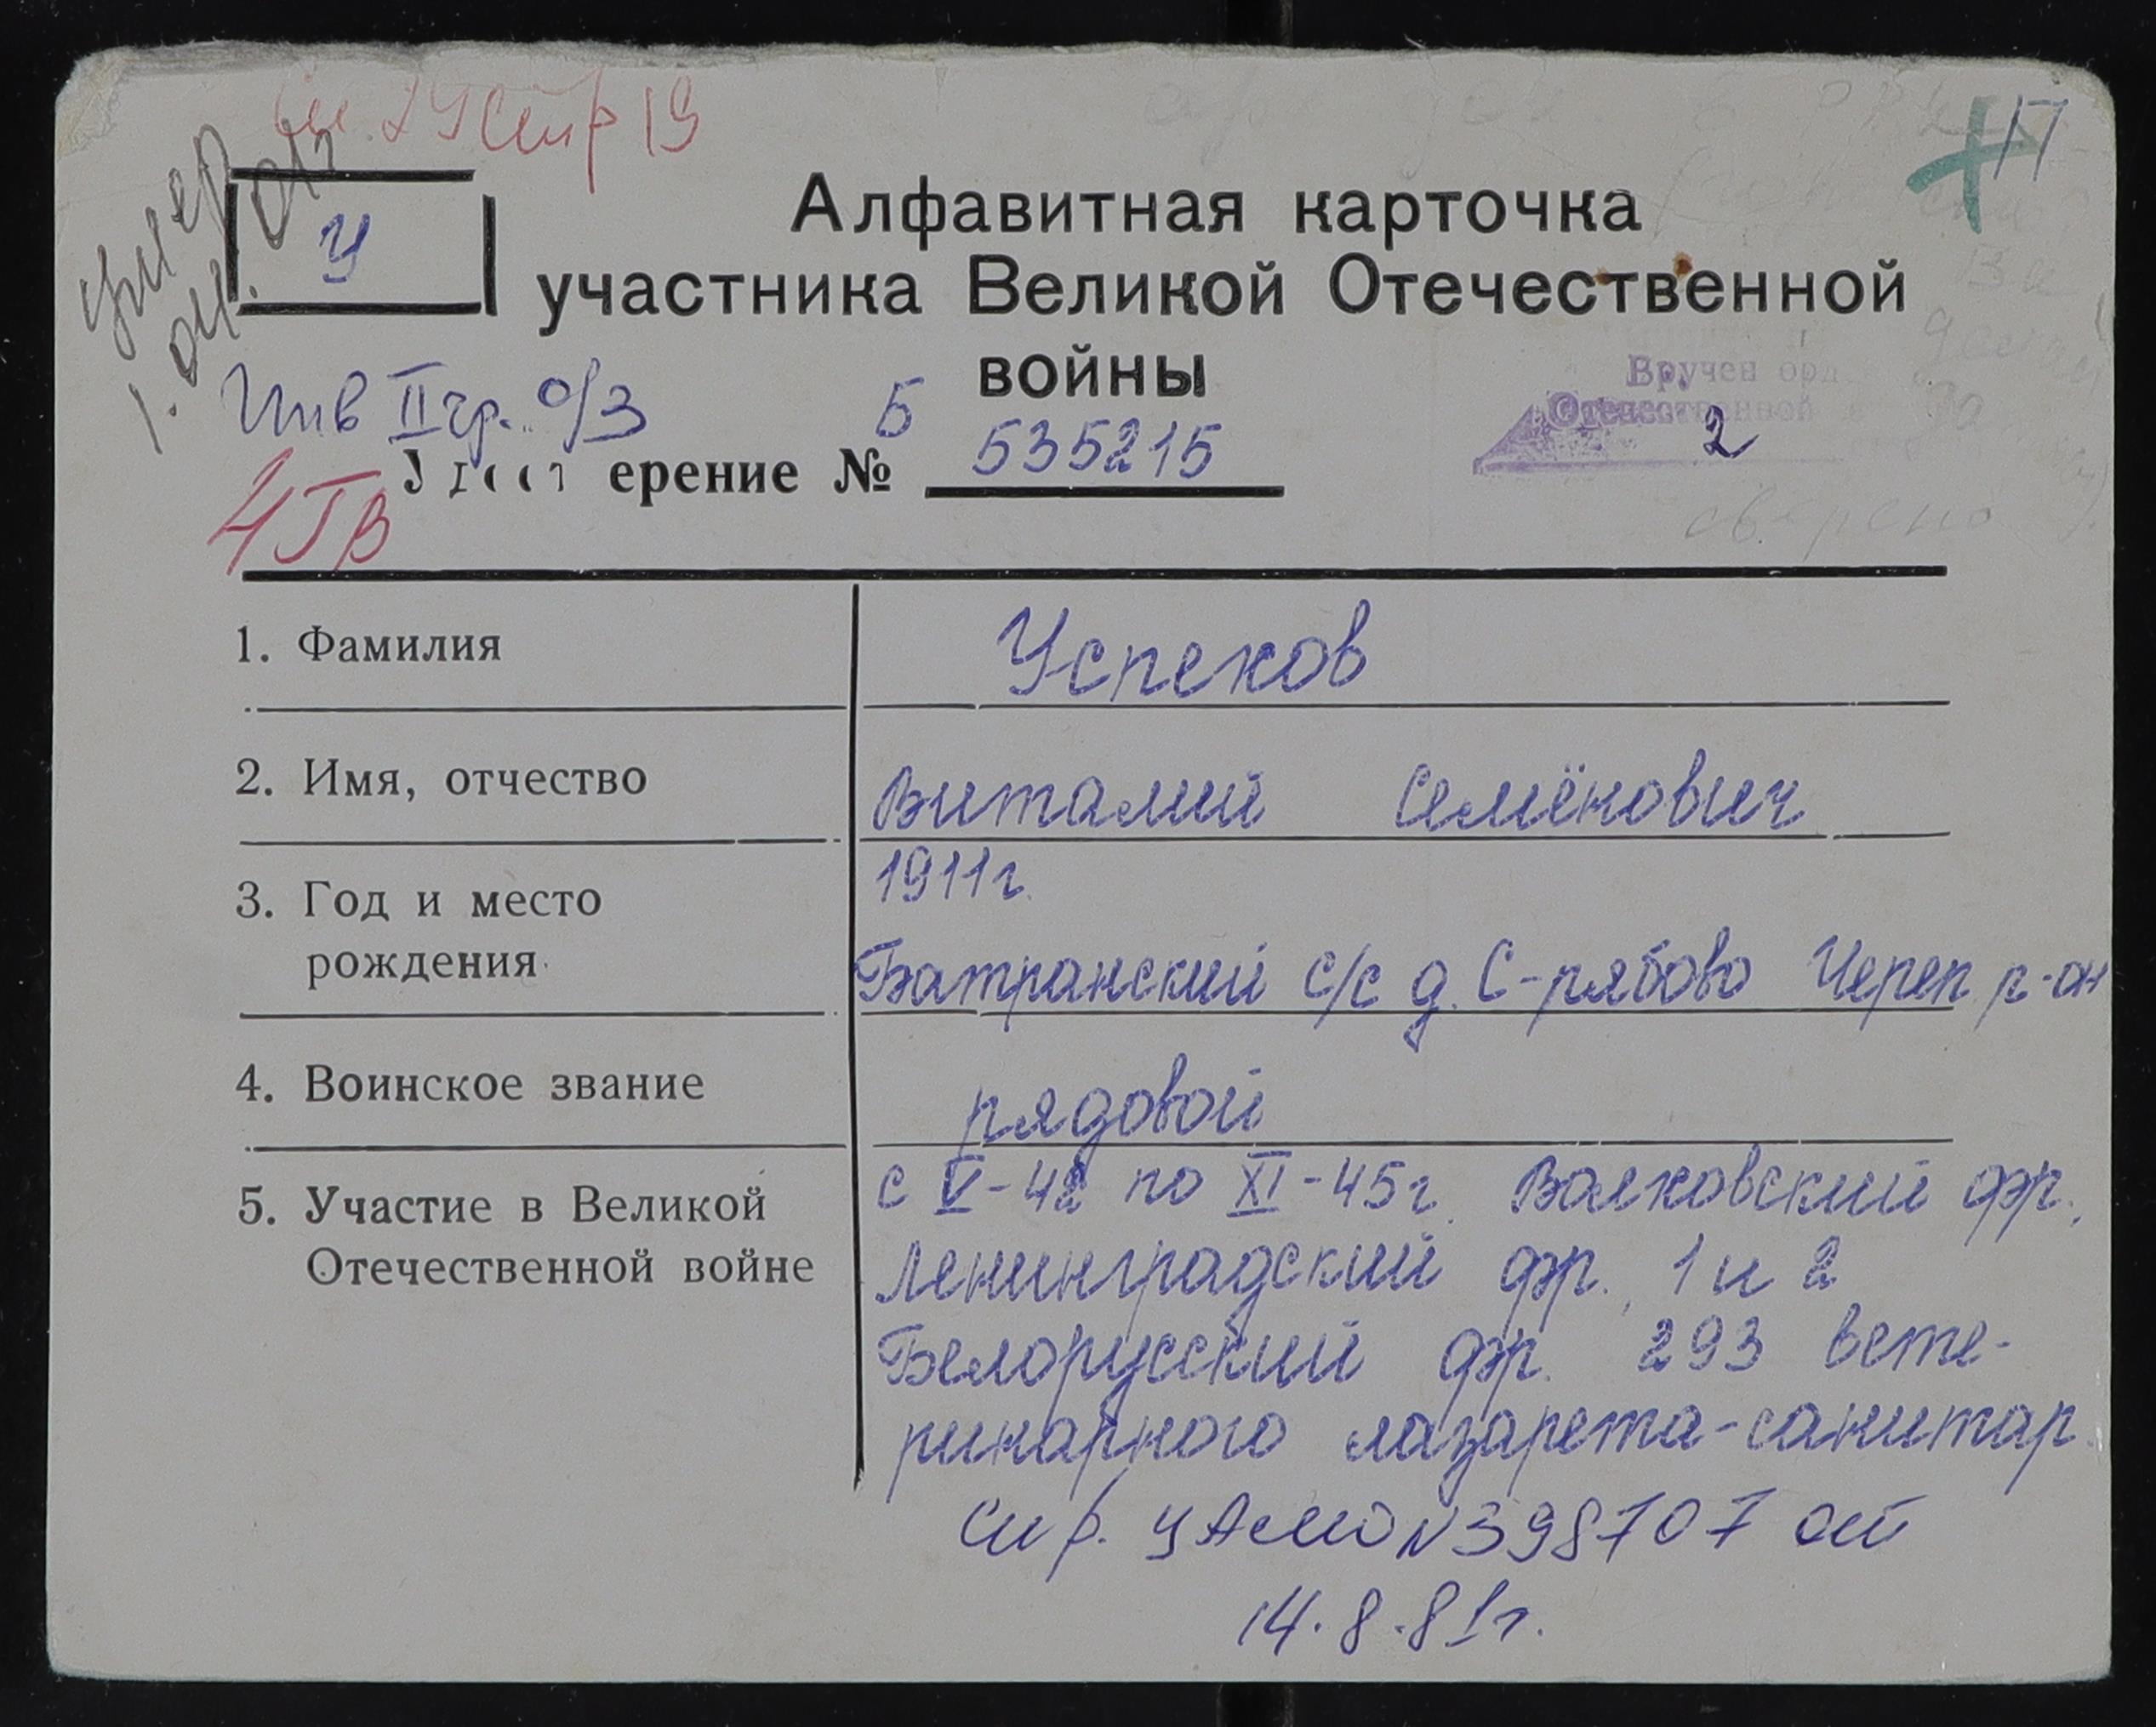 стр 19
П
умер
У
Алфавитная карточка
участника Великой Отечественной
войны
Инв II гр. о/з
Б
ерение № 535215
Вручен орд.
Отечественной в
2
сверено
4 ГВ
1. Фамилия
Успехов
2. Имя, отчество
Виталий Семёнович
3. Год и место
рождения
1911г.
Батранский с/с д. С-рябово Череп. р-он
4. Воинское звание
рядовой
5. Участие в Великой
Отечественной войне
с V-42 по XI-45г. Волховский фр.,
Ленинградский фр., 1 и 2
Белорусский фр. 293 вете-
ринарного лазарета-санитар.
Спр. ЦАМО N 398707 от
14.8.81г.